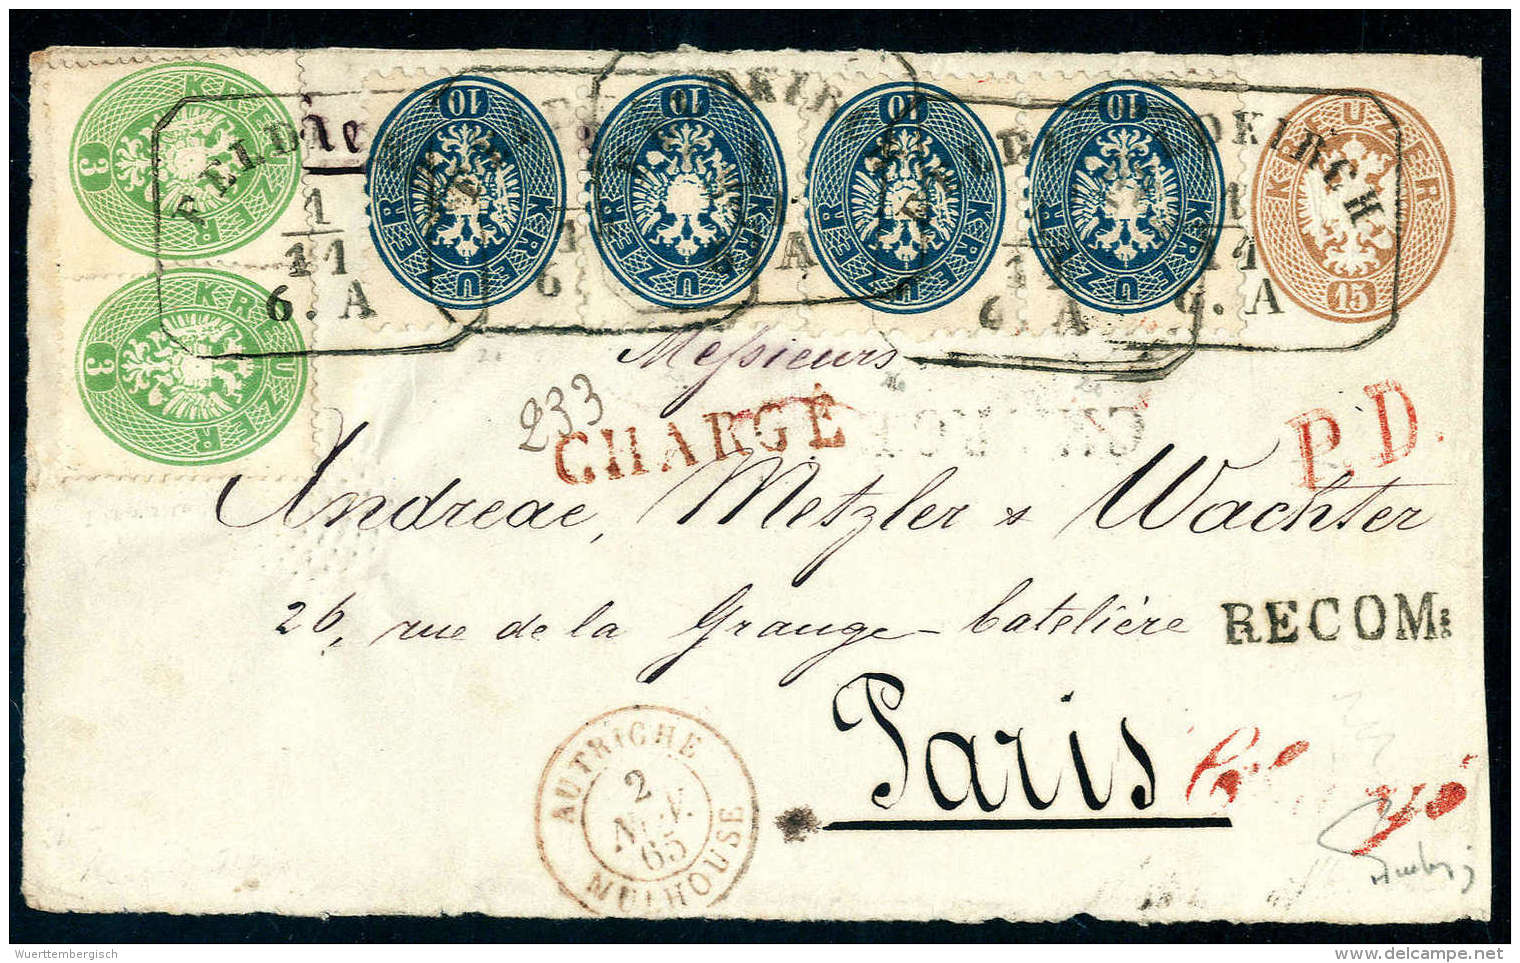 KREUZER 3
KREUZER 3
10 KREUZER
10 KREUZER
10 KREUZER
10 KREUZER
KREUZER 15
FELDKIRCH
1
11
6. A
Messieurs
233
CHARGÉ
P.D.
Andreae, Metzler & Wachter
26, rue de la Grange-batelière
RECOM:
Paris
AUTRICHE
2
NOV.
65
MULHOUSE
Wuerttembergisch
delcampe.net